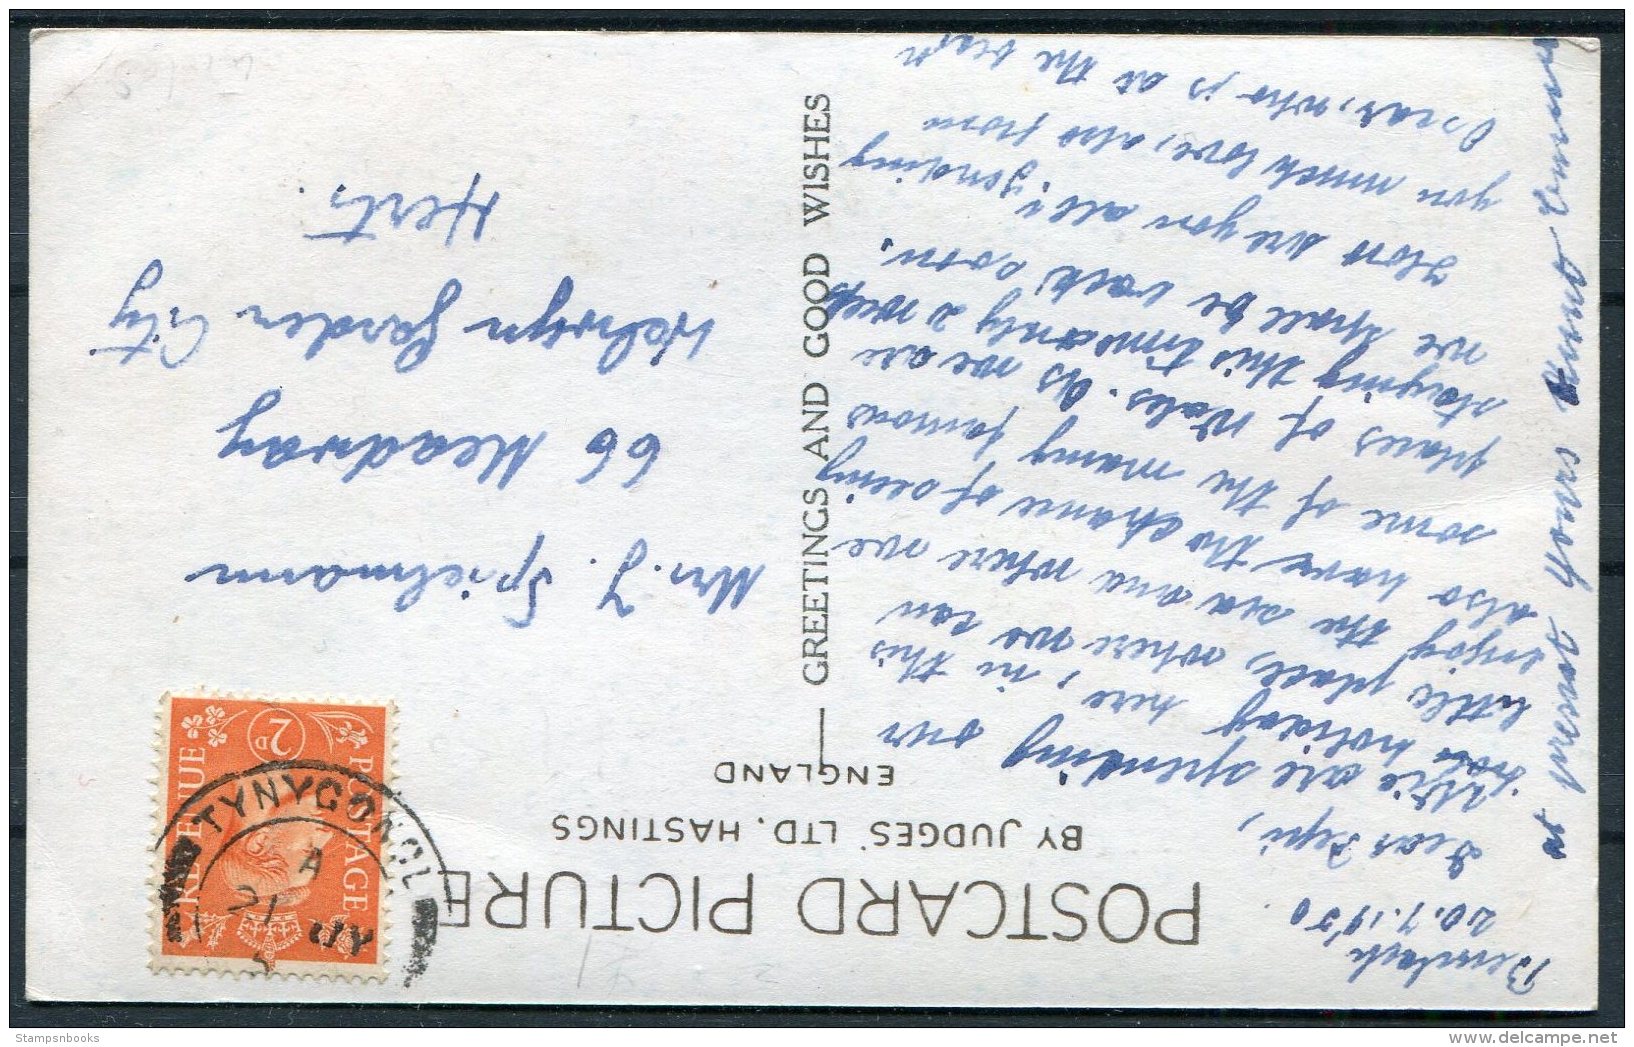 POSTCARD PICTURE
BY JUDGES' LTD. HASTINGS
ENGLAND
GREETINGS AND GOOD WISHES
Benllech
20.7.1950
Dear
We are spending our
holiday here, in this
little place, where we can
enjoy the sea and where we
also have the chance of seeing
some of the many famous
places of Wales. As we are
staying this time only 2 weeks
we shall be back soon.
How are you all? Sending
you much love, also from
Oscar, who is at the beach
at
Mrs. J. Spielmann
66 Meadway
Welwyn Garden City
Herts.
POSTAGE
REVENUE
2D
TYNYGONGL
A
21 JY
Stampsnbooks
www.delcampe.net